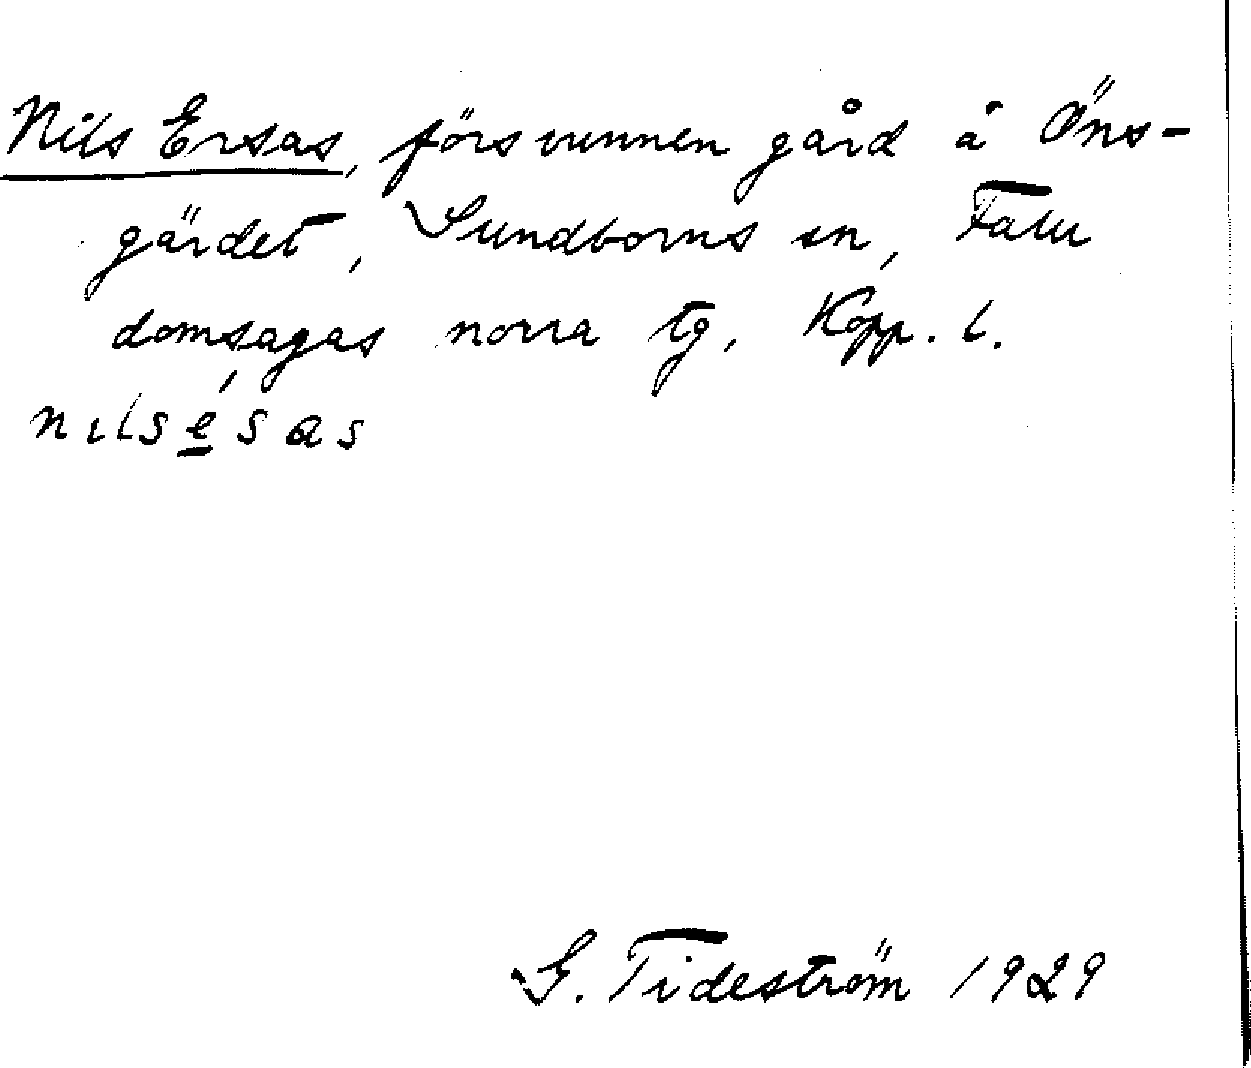 Nils Ersas, försvunnen gård å Öns-
gärdet, Sundborns sn, Falu
domsagas norra tg, Kopp. l.
nılsé̱sas
G. Tideström 1929